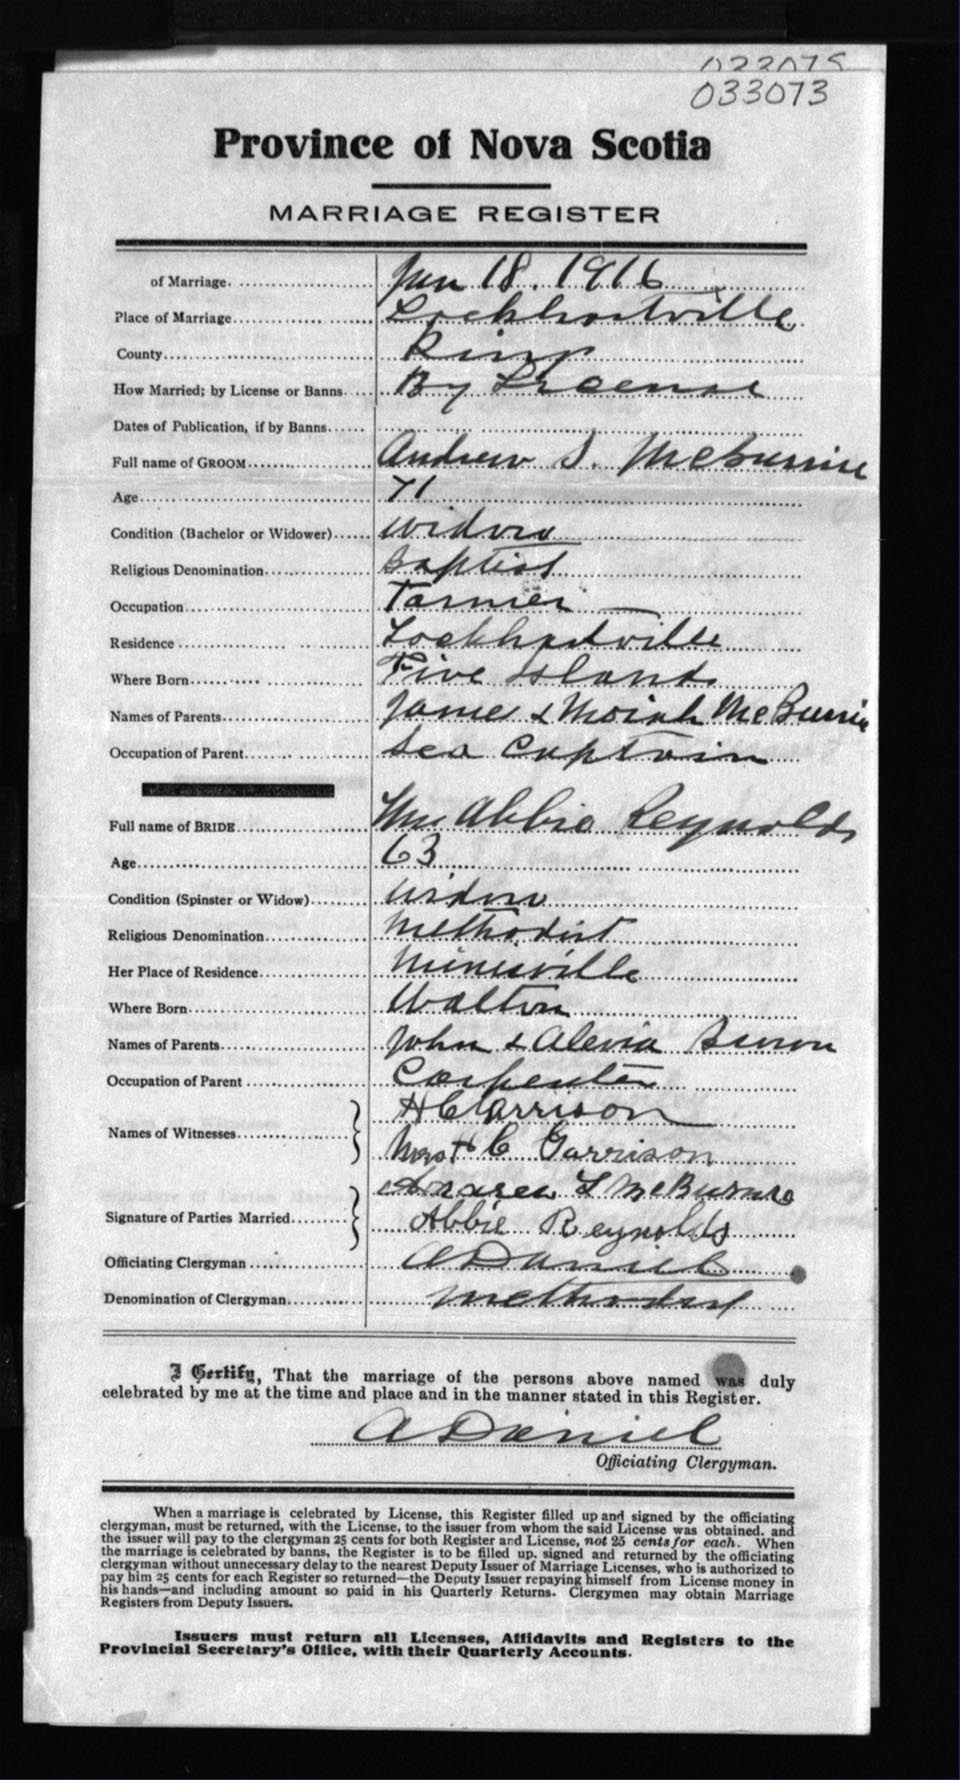 033075
033073
Province of Nova Scotia
MARRIAGE REGISTER
of Marriage. Jan 18. 1916
Place of Marriage Lockhartville
County Kings
How Married; by License or Banns By License
Dates of Publication, if by Banns
Full name of GROOM Andrew S. McBurnie
Age 71
Condition (Bachelor or Widower) widow
Religious Denomination Baptist
Occupation Farmer
Residence Lockhartville
Where Born Five Islands
Names of Parents James & Moiah McBurnie
Occupation of Parent Sea Captain
Full name of BRIDE Mrs Abbie Reynolds
Age 63
Condition (Spinster or Widow) widow
Religious Denomination Methodist
Her Place of Residence Minisville
Where Born Walton
Names of Parents John & Alevia
Occupation of Parent Carpenter
H C Garrison
Names of Witnesses
Mrs H C Garrison
Andrew L McBurnie
Signature of Parties Married
Abbie Reynolds
Officiating Clergyman A Daniel
Denomination of Clergyman Methodist
I Certify, That the marriage of the persons above named was duly
celebrated by me at the time and place and in the manner stated in this Register.
A Daniel
Officiating Clergyman.
When a marriage is celebrated by License, this Register filled up and signed by the officiating
clergyman, must be returned, with the License, to the issuer from whom the said License was obtained, and
the issuer will pay to the clergyman 25 cents for both Register and License, not 25 cents for each. When
the marriage is celebrated by banns, the Register is to be filled up, signed and returned by the officiating
clergyman without unnecessary delay to the nearest Deputy Issuer of Marriage Licenses, who is authorized to
pay him 25 cents for each Register so returned—the Deputy Issuer repaying himself from License money in
his hands—and including amount so paid in his Quarterly Returns. Clergymen may obtain Marriage
Registers from Deputy Issuers.
Issuers must return all Licenses, Affidavits and Registers to the
Provincial Secretary's Office, with their Quarterly Accounts.